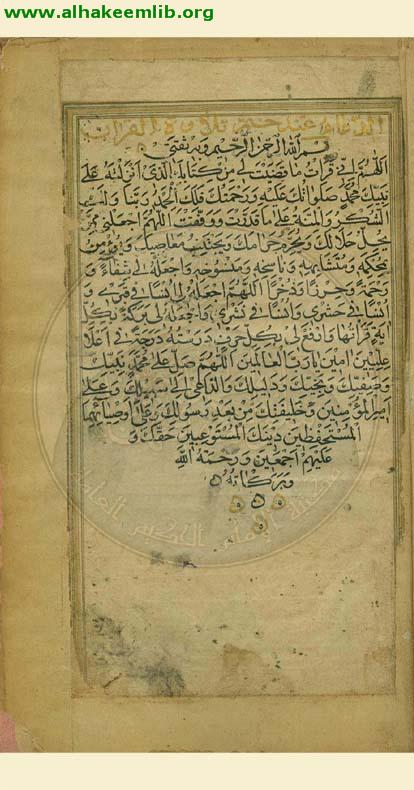 www.alhakeemlib.org
الدعاء عند ختم تلاوة القران
بسم الله الرحمن الرحيم وبه ثقتي
اللهم اني قرات ما قضيت لي من كتابك الذي انزلته على
نبيك محمد صلواتك عليه ورحمتك فلك الحمد ربنا ولك
الشكر والمنة على ما قدرت ووفقت اللهم اجعلني ممن
يحل حلالك ويحرم حرامك ويجتنب معاصيك ويؤمن
بمحكمه ومتشابهه وناسخه ومنسوخه واجعله لي شفاء و
رحمة وحرزا وذخرا اللهم اجعله لي انسا في قبري و
انسا في حشري وانسا في نشري واجعله لي بركة بكل
اية قراتها وارفع لي بكل حرف درسته درجة في اعلا
عليين امين يا رب العالمين اللهم صل على محمد نبيك
وصفيك ونجيك ودليلك والداعي الى سبيلك وعلى
امير المؤمنين وخليفتك من بعد رسولك وعلى اوصيائهما
المستحفظين دينك المستودعين حقك و
عليهم اجمعين ورحمة الله
وبركاته